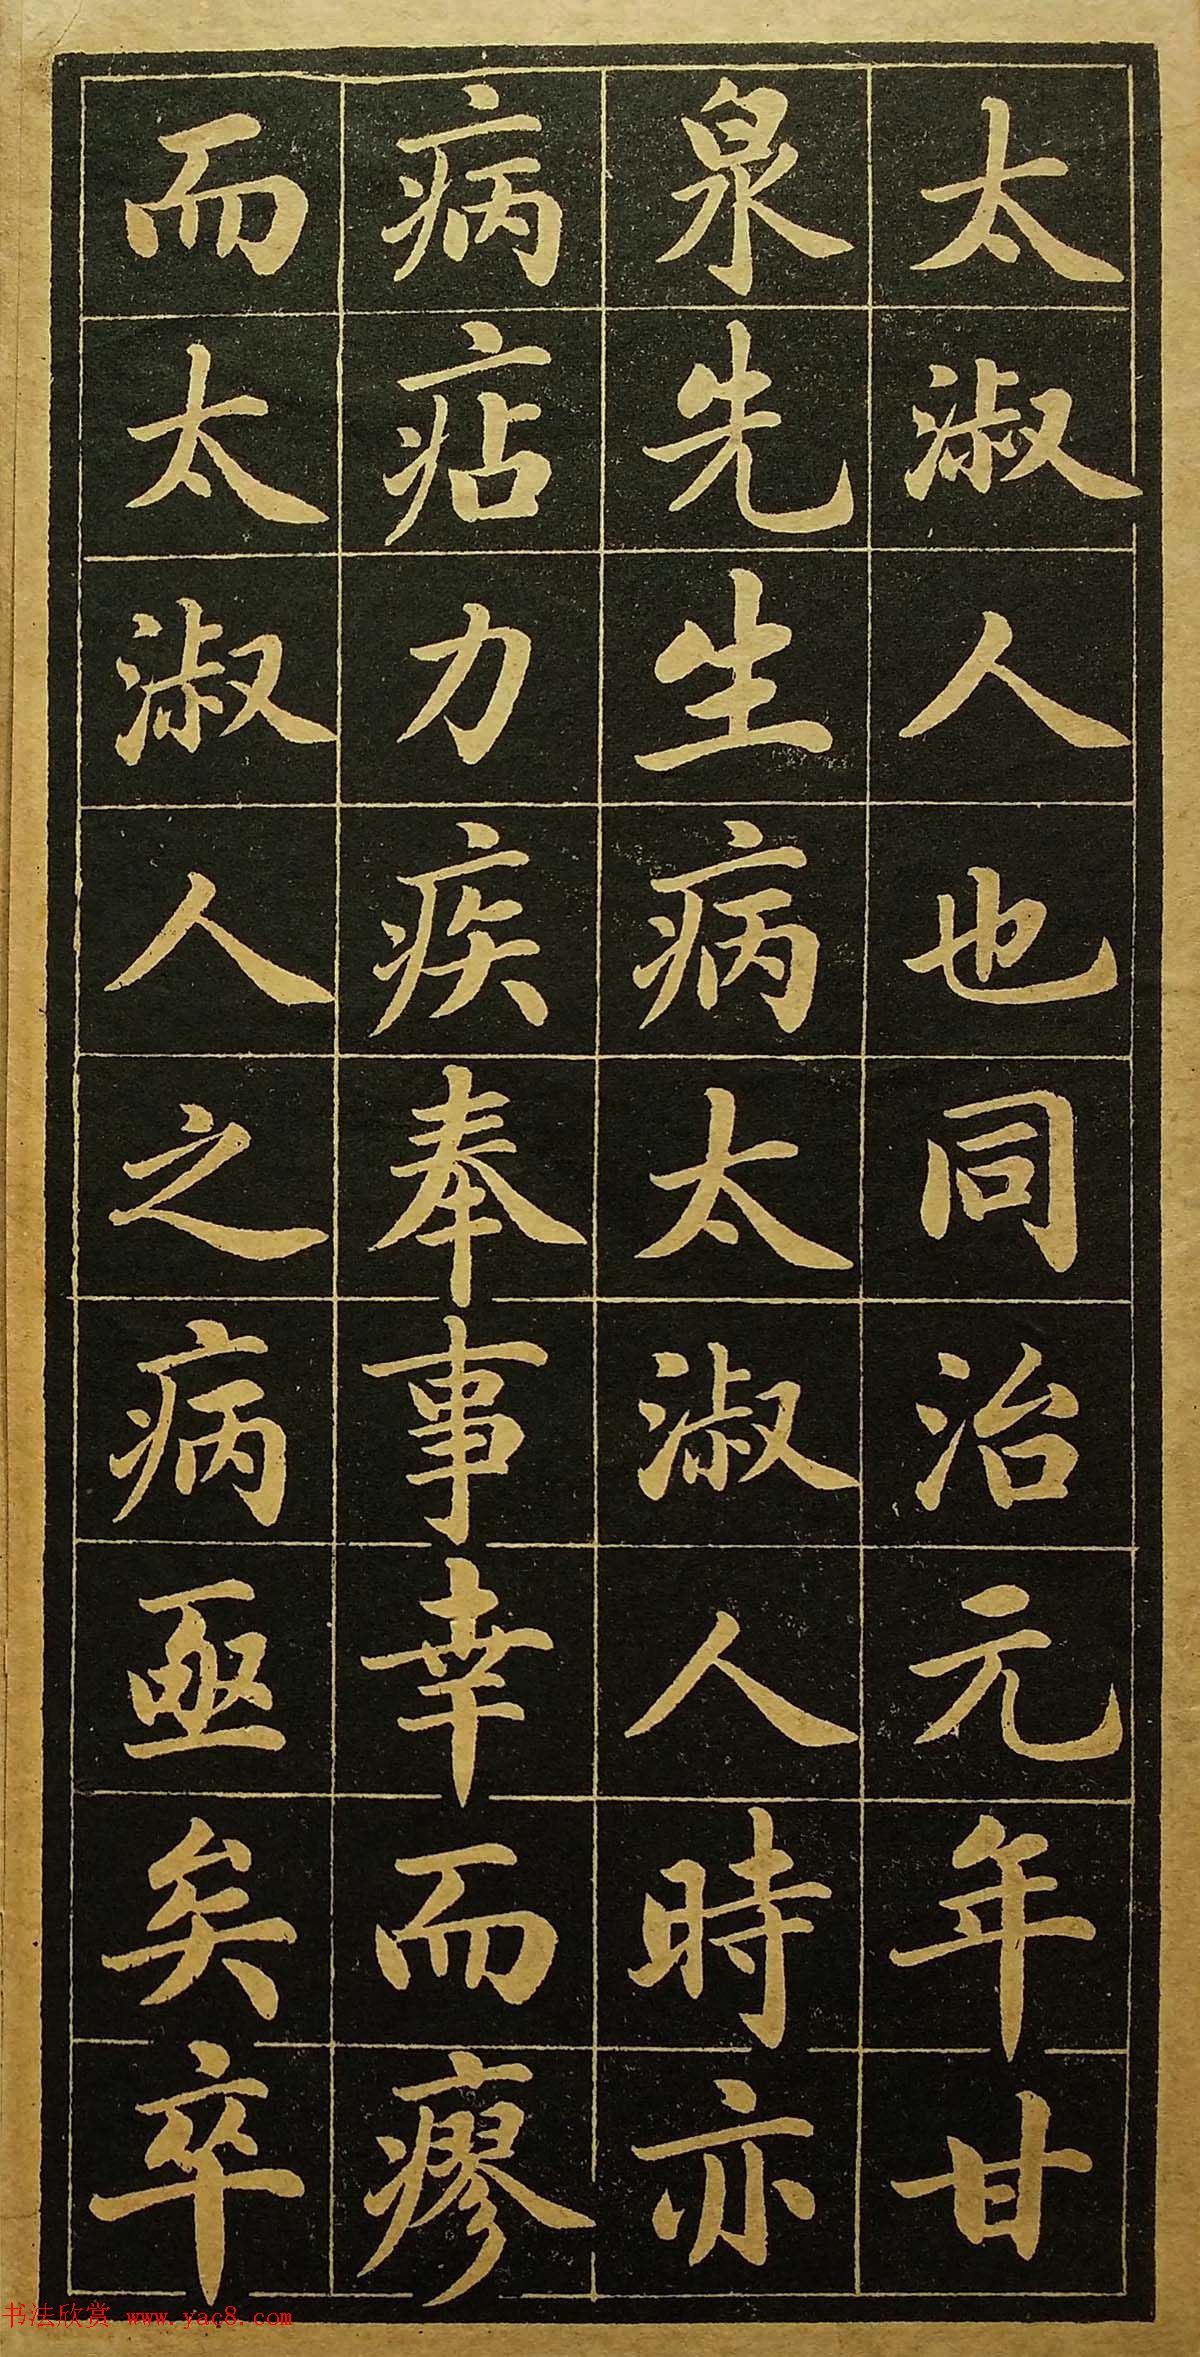 太淑人也同治元年甘
泉先生病太淑人時亦
病痁力疾奉事幸而瘳
而太淑人之病亟矣卒
书法欣赏 www.yac8.com